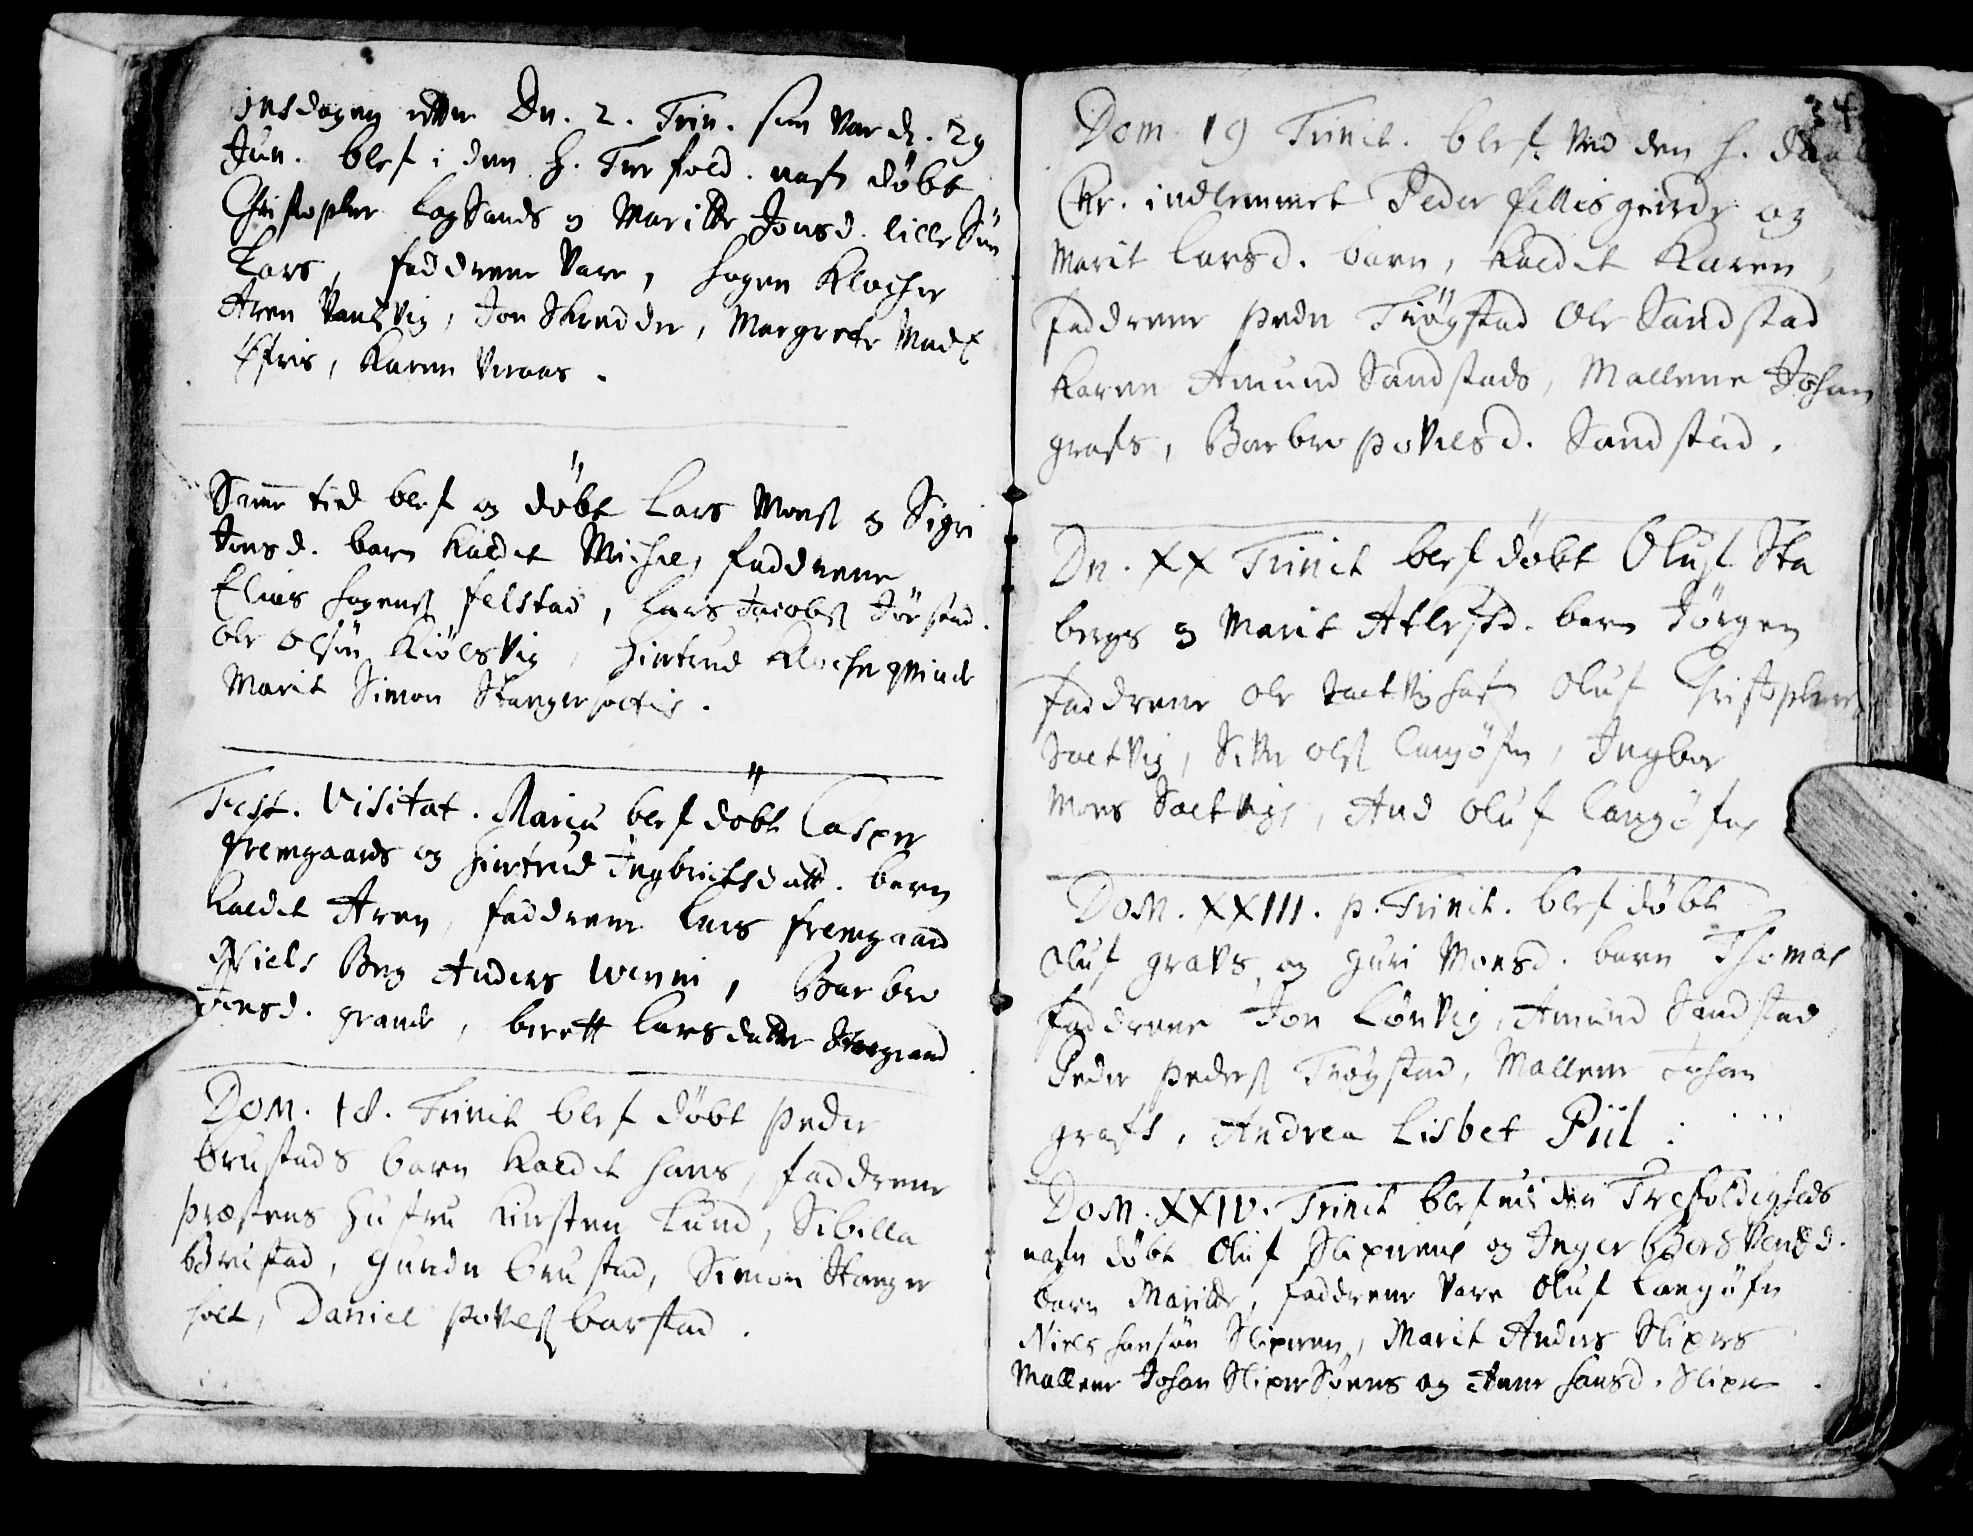 insdagen effter Dn. 2. Trin. som var d. 29
Jun. blef i den H. Trefold. nafn döbt
Christopher LogSands og Maritte Jonsd. lille Sön
Lars, faddrene vare, Hagen Klocher
Aren Vansvig, Jon Skredder, Margrete Mads
Karen Veraas.
Samme tid blef og döbt Lars Monss. og Sigri
Jonsd. barn kaldet Michel, faddrene
Elias Hagenss. felstad, Lars Jacobss. Jörstad.
Ole Olsön Kiölsvig, Giertrud Klocherqvinde
Marit Simon Stangerholtis.
Fest. Visitat. Mariæ blef döbt Casper
fremgaards og Giertrud Ingbrichtsdatt. barn
kaldet Aren, faddrene Lars fremgaard
Niels Berg Anders Wenni, Barbro
Jensd. grande, berett Larsdatter
Dom. 18. Trinit blef döbt Peder
brustads barn kaldet Hans, faddrene
præstens Hustru Kirsten Lund, Sibilla
Brustad, Gunder brustad, Simon Stanger
holt, Daniel Povelss. barstad.
34
Dom 19 Trinit. blef ved den H. daab
Chr. indlemmet Peder fillisgierde og
Marit Larsd. barn, kaldet Karen,
faddrene Peder Tröystad Ole Sandstad
Karen Amund Sandstads, Mallene Johan
grafs, Barbro Povelsd. Sandstad.
Dn. XX Trinit blef döbt Oluf Sta
bergs og Marit Atlessd. barn Jörgen
faddrene Ole Oluf Christopher
Saltvig, Siver Olss. Langöfn, Ingbor
Mons Saltvigs, And Oluf Langöfns
Dom. XXIII. p. Trinit. blef döbt
Oluf gravs og Guri Monsd. barn Thomas
faddrene Jon Lönvig, Amund Sandstad
Peder Pederss. Tröystad, Mallene Johan
grafs, Andrea Lisbet Piil.
Dom. XXIV. Trinit blef udi den Trefoldigheds
nafn döbt Oluf Slipernes og Inger Bers d.
barn Maritte, faddrene vare Oluf Langöfn
Niels Hansön Sliperen, Marit Anders Slipers
Mallene Johan SliperSvens og Anne Hansd. Sliper.